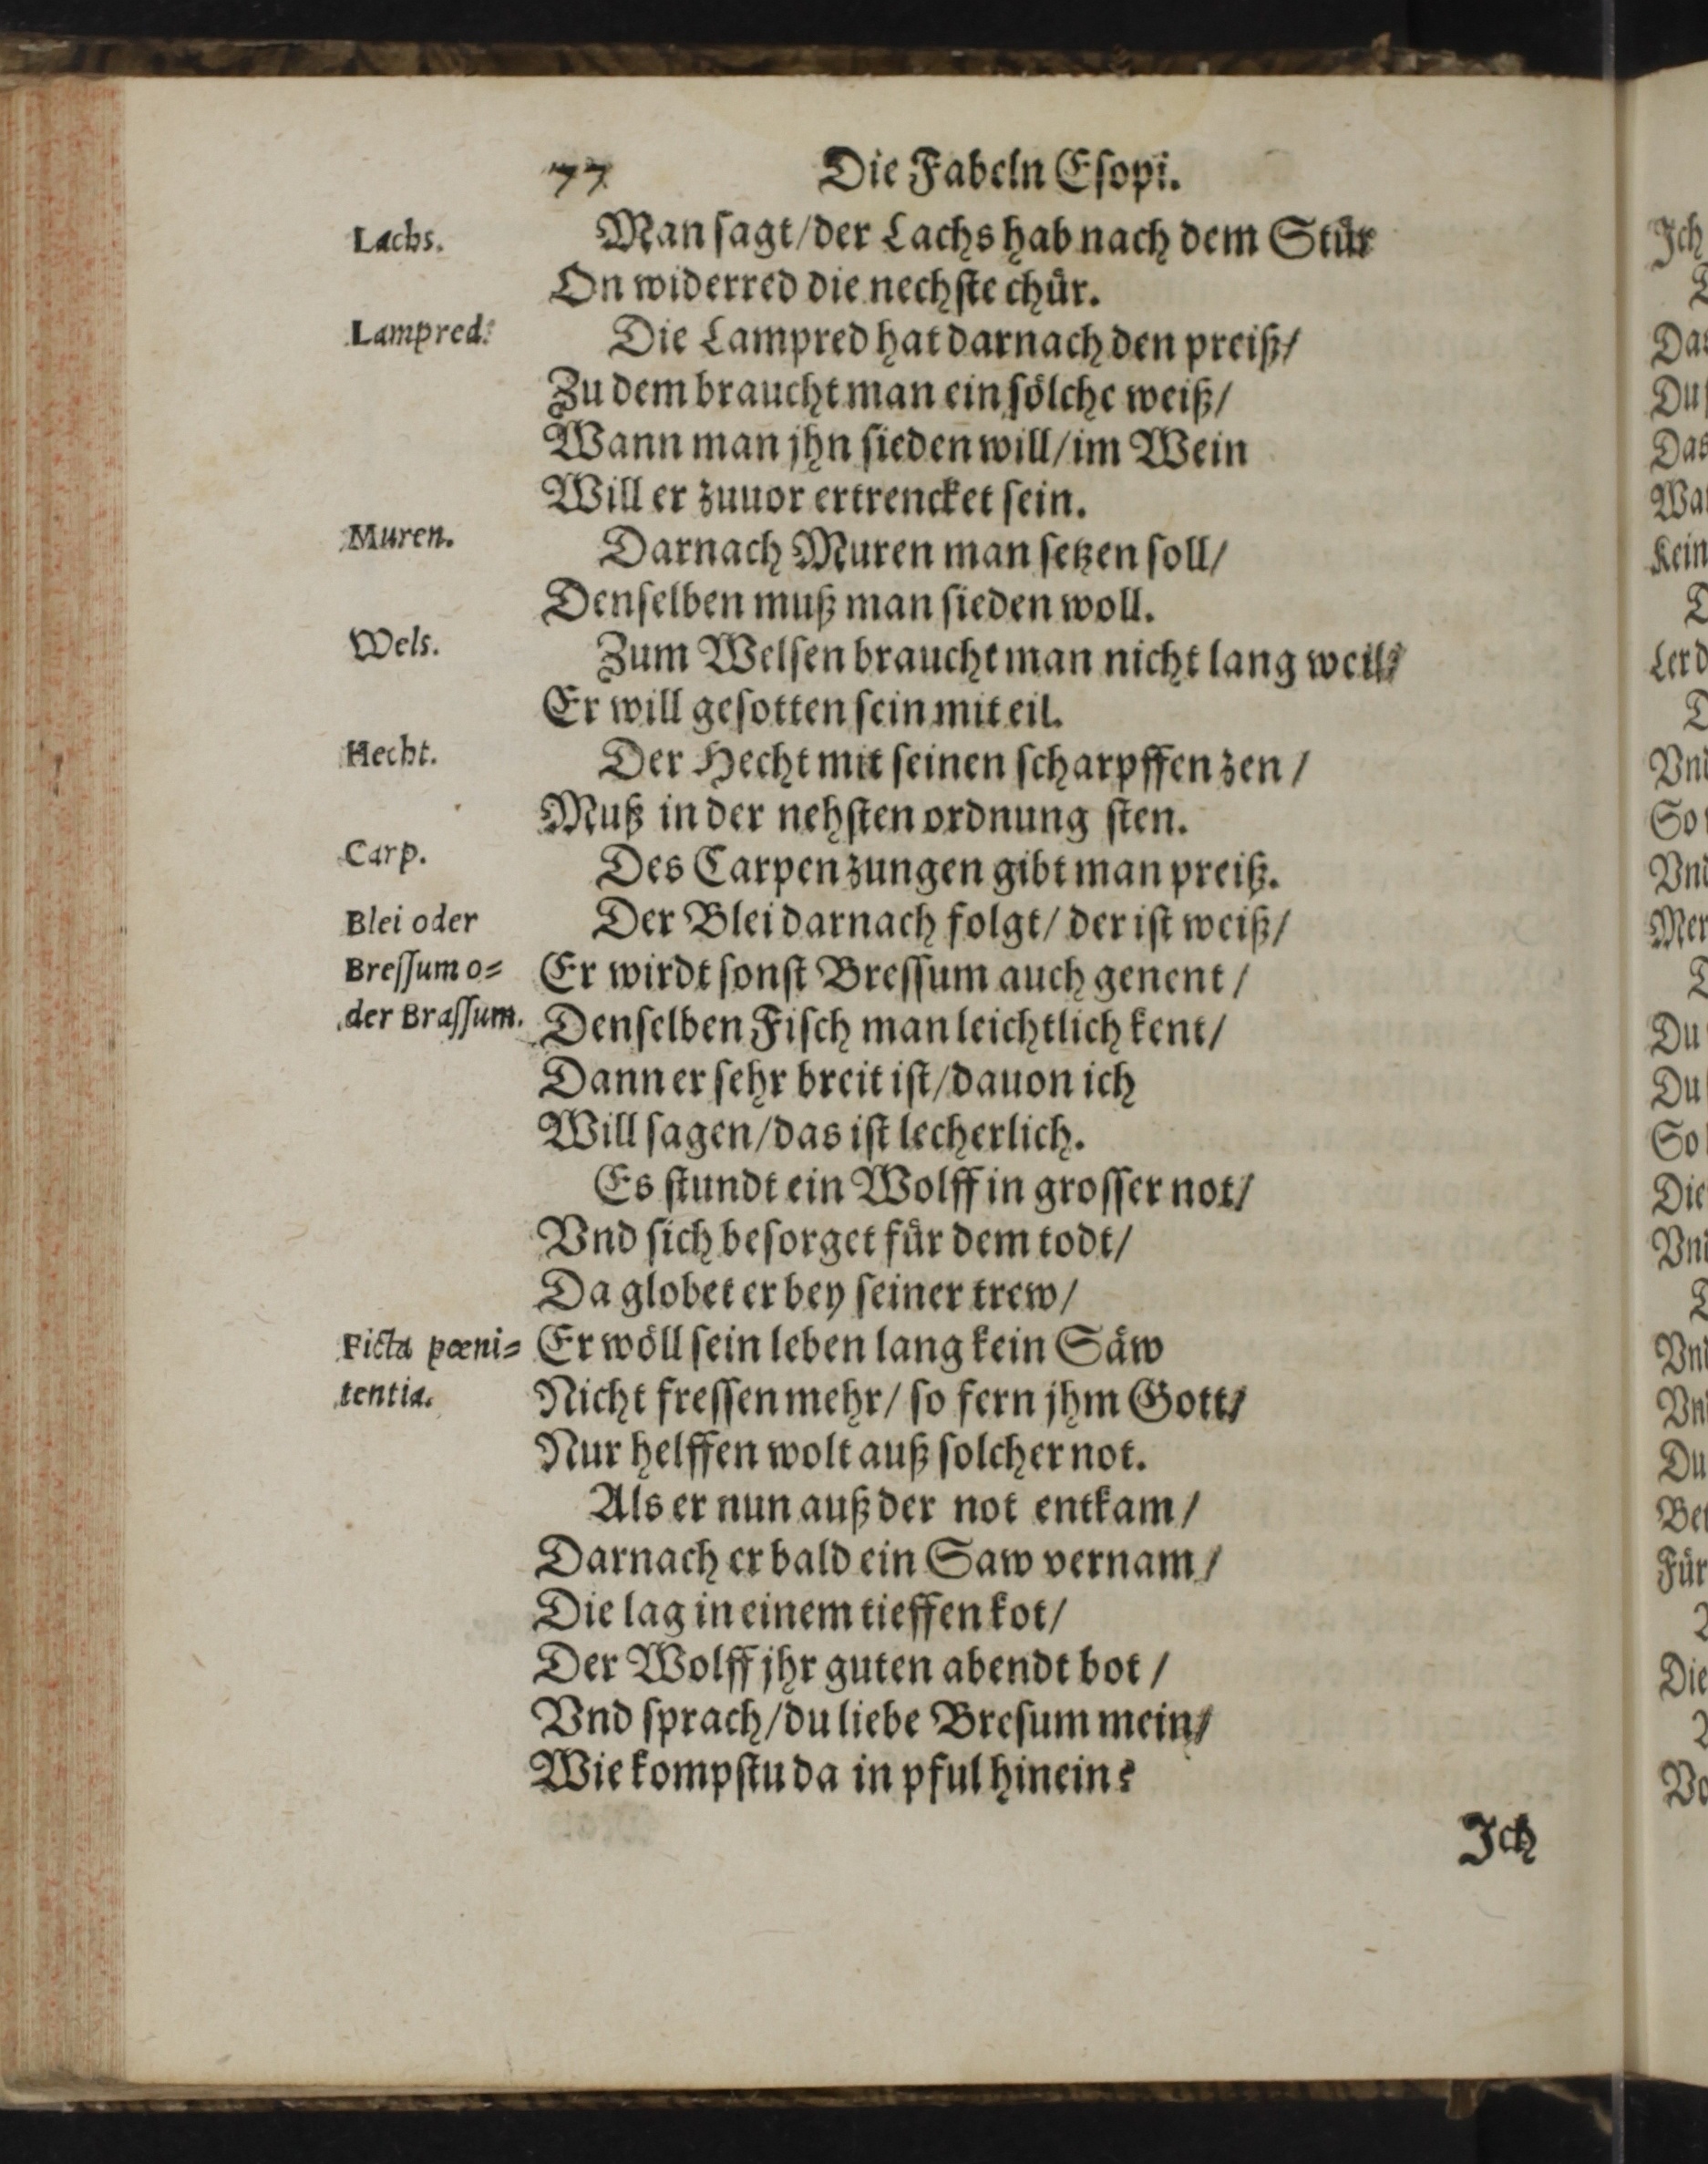 77 Die Fabeln Esopi.
Lachs. Man sagt/der Lachs hab nach dem Stür
On widerred die nechste chür.
Lampred. Die Lampred hat darnach den preiß/
Zu dem braucht man ein sölche weiß/
Wann man jhn sieden will/im Wein
Will er zuuor ertrencket sein.
Muren. Darnach Muren man setzen soll/
Denselben muß man sieden woll.
Wels. Zum Welsen braucht man nicht lang weil/
Er will gesotten sein mit eil.
Hecht. Der Hecht mit seinen scharpffen zen/
Muß in der nehsten ordnung sten.
Carp. Des Carpen zungen gibt man preiß.
Blei oder Der Blei darnach folgt/ der ist weiß/
Bressum o= Er wirdt sonst Bressum auch genent/
der Brassum. Denselben Fisch man leichtlich kent/
Dann er sehr breit ist/dauon ich
Will sagen/das ist lecherlich.
Es stundt ein Wolff in grosser not/
Vnd sich besorget für dem todt/
Da globet er bey seiner trew/
Ficta pœni= Er wöll sein leben lang kein Säw
tentia. Nicht fressen mehr/ so fern jhm Gott/
Nur helffen wolt auß solcher not.
Als er nun auß der not entkam/
Darnach er bald ein Saw vernam/
Die lag in einem tieffen kot/
Der Wolff jhr guten abendt bot/
Vnd sprach/du liebe Bresum mein/
Wie kompstu da in pful hinein?
Ich